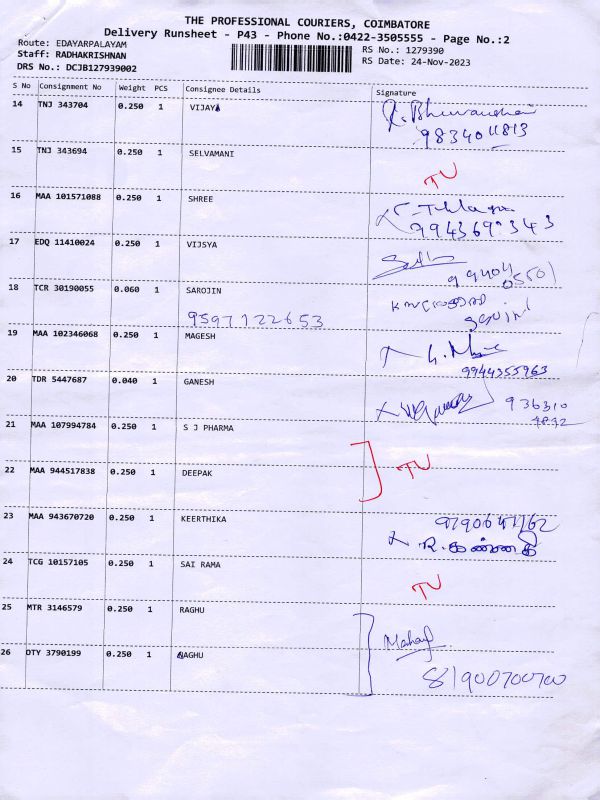 THE PROFESSIONAL COURIERS, COIMBATORE
Delivery Runsheet - P43 - Phone No.:0422-3505555 - Page No.:2
Route: EDAYARPALAYAM
Staff: RADHAKRISHNAN
DRS No.: DCJB127939002
RS No.: 1279390
RS Date: 24-Nov-2023
S No Consignment No Weight PCS Consignee Details Signature
14 TNJ 343704 0.250 1 VIJAYA
9834011813
15 TNJ 343694 0.250 1 SELVAMANI TU
16 MAA 101571088 0.250 1 SHREE
17 EDQ 11410024 0.250 1 VIJSYA
99404
05501
18 TCR 30190055 0.060 1 SAROJIN
9597122653
19 MAA 102346068 0.250 1 MAGESH
9944355963
20 TDR 5447687 0.040 1 GANESH
936310
21 MAA 107994784 0.250 1 S J PHARMA
TU
22 MAA 944517838 0.250 1 DEEPAK
23 MAA 943670720 0.250 1 KEERTHIKA
R. கண்ணகி
24 TCG 10157105 0.250 1 SAI RAMA
TU
25 MTR 3146579 0.250 1 RAGHU
26 DTY 3790199 0.250 1 RAGHU
8190070070